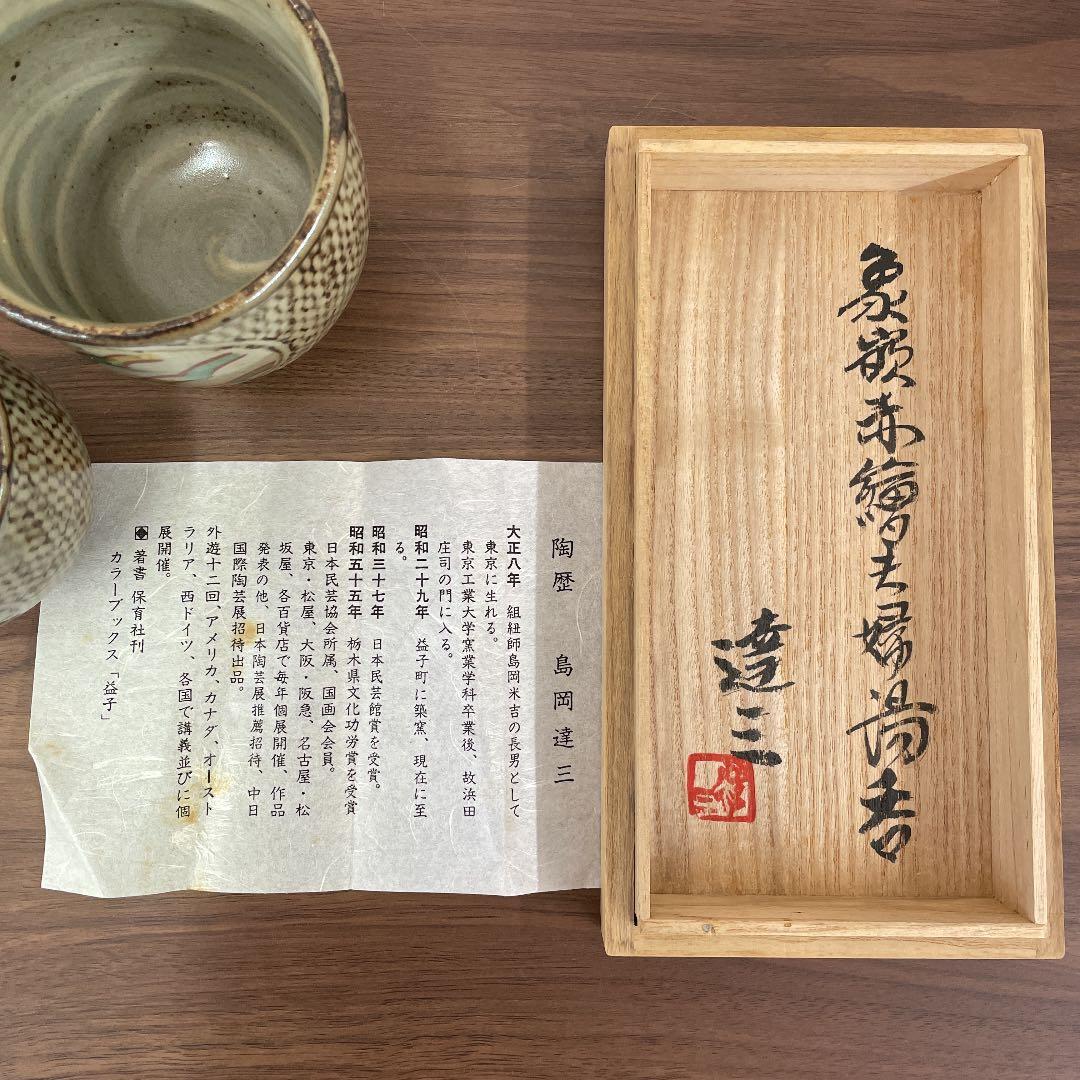 象嵌赤繪夫婦湯呑
達三
陶歴　島岡達三
大正八年　組紐師島岡米吉の長男として
東京に生れる。
東京工業大学窯業学科卒業後、故浜田
庄司の門に入る。
昭和二十九年　益子町に築窯、現在に至
る。
昭和三十七年　日本民芸館賞を受賞。
昭和五十五年　栃木県文化功労賞を受賞
日本民芸協会所属、国画会会員。
東京・松屋、大阪・阪急、名古屋・松
坂屋、各百貨店で毎年個展開催、作品
発表の他、日本陶芸展推薦招待、中日
国際陶芸展招待出品。
外遊十二回、アメリカ、カナダ、オースト
ラリア、西ドイツ、各国で講義並びに個
展開催。
著書　保育社刊
カラーブックス「益子」